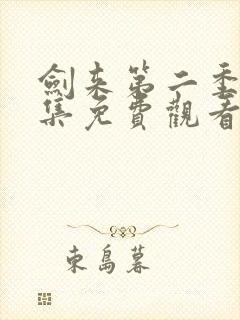 劍來第二季
集免費觀看
東島暮